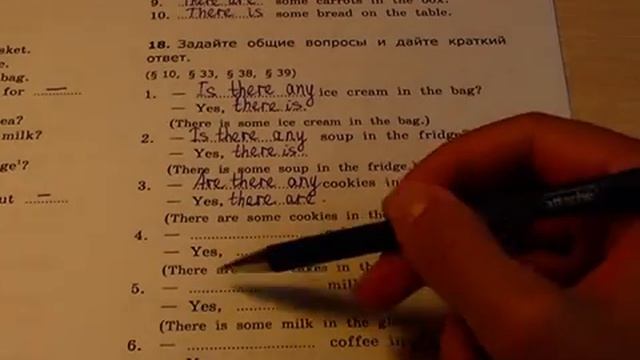 9. There are some carrots in the box.
10. There is some bread on the table.
18. Задайте общие вопросы и дайте краткий
ответ.
(§ 10, § 33, § 38, § 39)
1. — Is there any ice cream in the bag?
— Yes, there is.
(There is some ice cream in the bag.)
2. — Is there any soup in the fridge?
— Yes, there is.
(There is some soup in the fridge.)
3. — Are there any cookies in
— Yes, there are.
(There are some cookies in the
4. —
— Yes,
(There are in th
5. — milk
— Yes,
(There is some milk in the gl
6. — coffee in
sket.
e.
bag.
for —
ea?
milk?
ge?
ut —